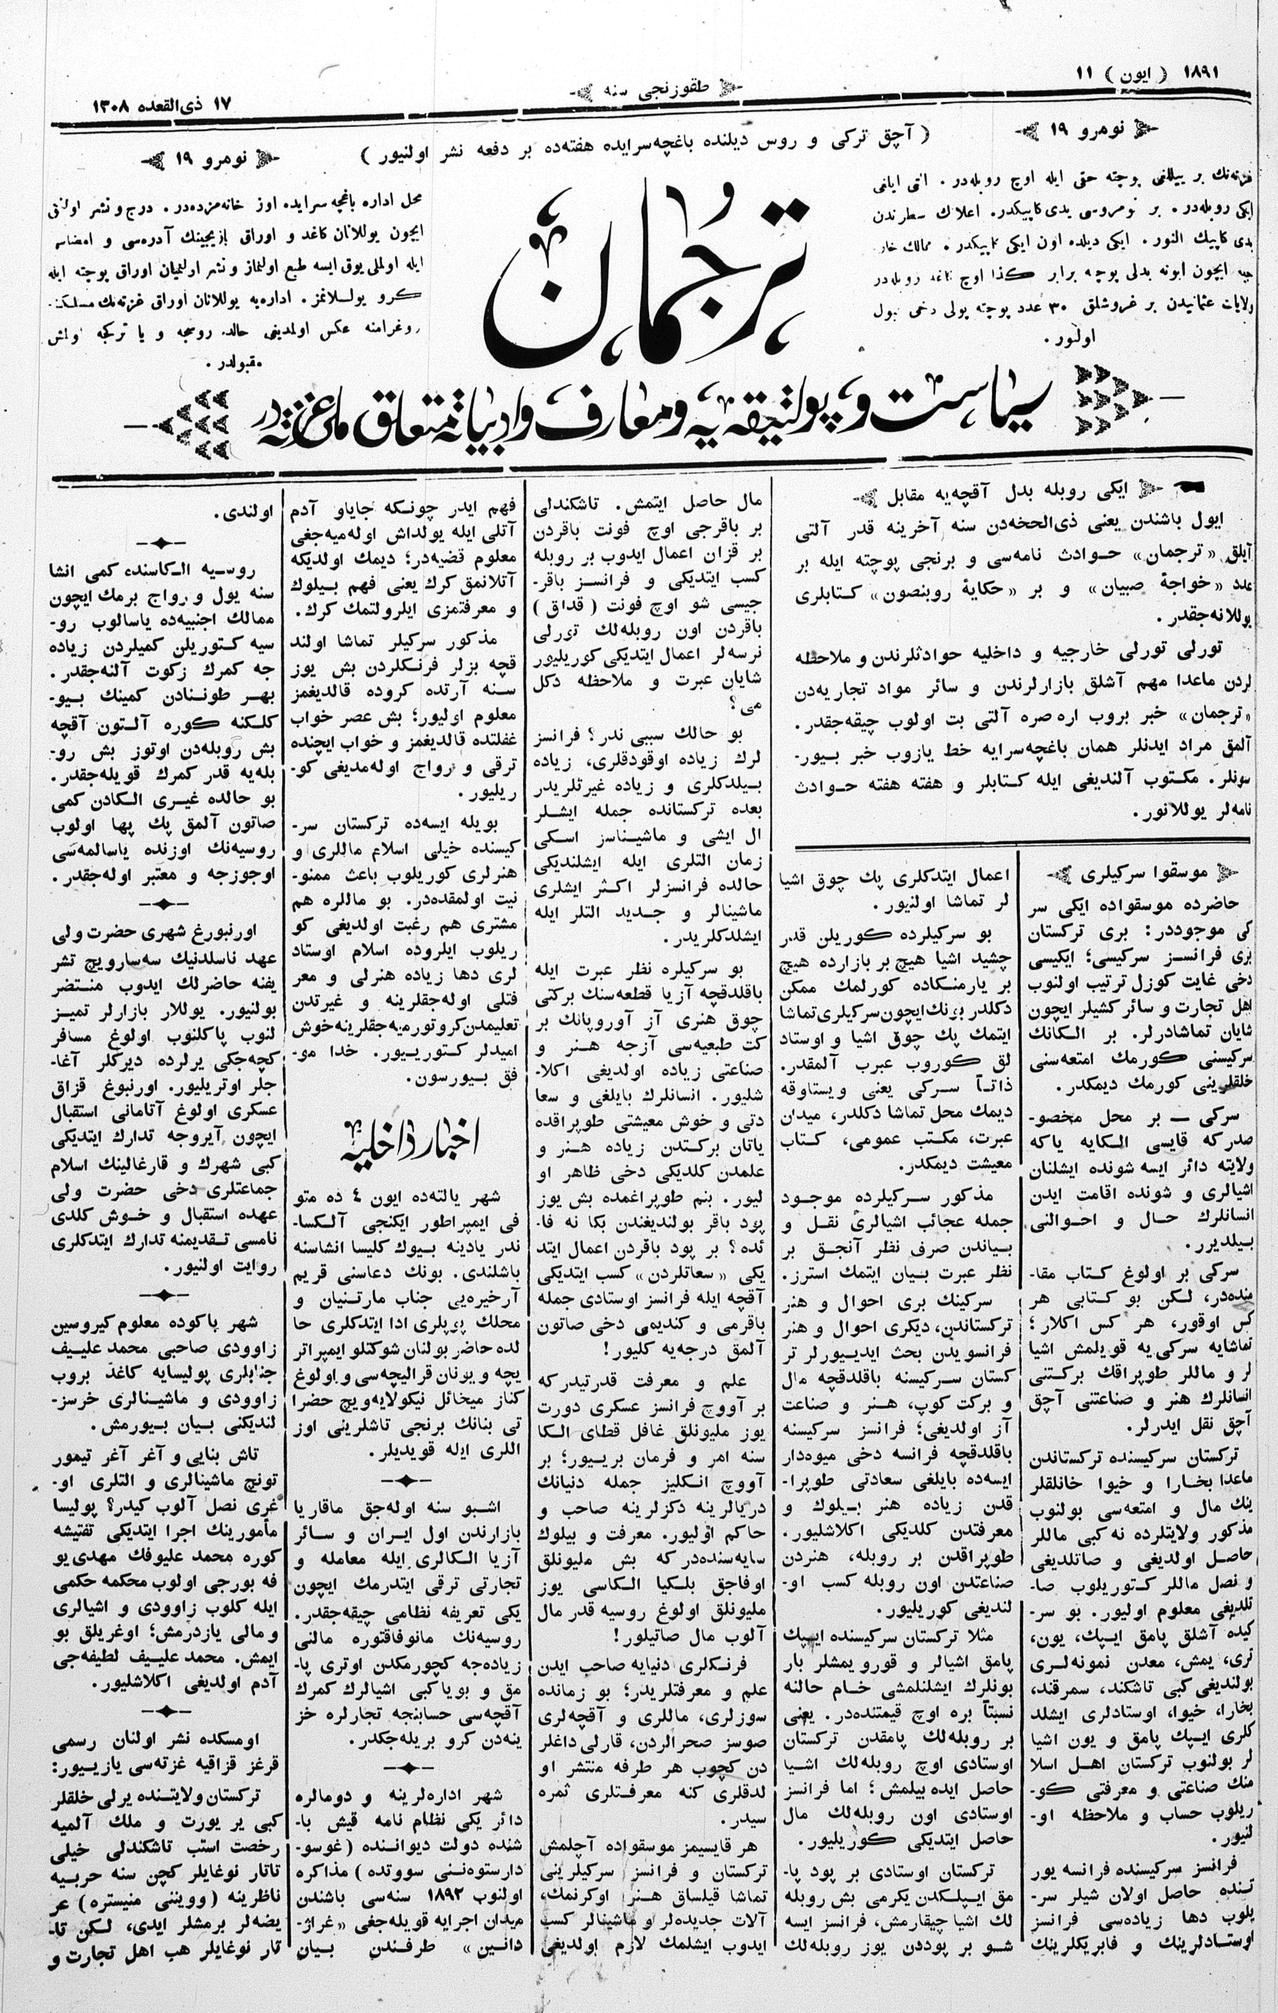 ١٨٩١ ( ايون ) ١١
طقوزنجی سنه
١٧ ذی القعده ١٣٠٨
نومرو ١٩
( آچق تركی و روس ديلنده باغچه‌سرايده هفته‌ده بر دفعه نشر اولنيور )
نومرو ١٩
غزته‌نك بر ييللغی پوچته حقی ايله اوچ روبله‌در .
ايكی روبله‌در . بر نومروسی يدی كاپيكدر. اعلانك سطرندن
يدی كاپيك النور . ايكی ديلده اون ايكی كاپيكدر .
ايچون ابونه بدلی پوچه برابر
ولايات عثمانيدن بر غروشلق ٣٠ عدد پوچته پولی دخی قبول
اولنور .
محل اداره باغچه سرايده اوز خانه‌مزده‌در . درج و نشر اولنمق
ايچون يوللانان كاغد و اوراق يازيجينك آدره‌سی و امضاسی
ايله اولملی يوق ايسه طبع اولنماز و نشر اولنميان اوراق پوچته ايله
كرو يوللانمز . اداره‌يه يوللانان اوراق غزته‌نك مسلك
پروغرامنه عكس اولمديغی حالده روسچه و يا تركچه اولمش
مقبولدر .
ترجمان
سياست و پولتيقه‌يه و معارف و ادبياته متعلق ملی غزته‌در
ايكی روبله بدل آقچه‌يه مقابل
ايول باشندن يعنی ذی الحجه‌دن سنه آخرينه قدر آلتی
آيلق «ترجمان» حوادث نامه‌سی و برنجی پوچته ايله بر
عدد «خواجۀ صبيان» و بر «حكايۀ روبنصون» كتابلری
يوللانه‌جقدر .
تورلی تورلی خارجيه و داخليه حوادثلرندن و ملاحظه
لردن ماعدا مهم آشلق بازارلرندن و سائر مواد تجاريه‌دن
«ترجمان» خبر بروب اره صره آلتی بت اولوب چيقه‌جقدر .
آلمق مراد ايدنلر همان باغچه‌سرايه خط يازوب خبر بيور-
سونلر . مكتوب آلنديغی ايله كتابلر و هفته هفته حوادث
نامه‌لر يوللانور .
موسقوا سركيلری
حاضرده موسقواده ايكی سر
كی موجوددر: بری تركستان
بری فرانسز سركيسی؛ ايكيسی
دخی غايت كوزل ترتيب اولنوب
اهل تجارت و سائر كشيلر ايچون
شايان تماشادرلر . بر الكانك
سركيسنی كورمك امتعه‌سنی
خلقلرينی كورمك ديمكدر.
سركی — بر محل مخصو-
صدركه قايسی الكايه ياكه
ولايته دائر ايسه شونده ايشلنان
اشيالری و شونده اقامت ايدن
انسانلرك حال و احوالنی
بيلديرر.
سركی بر اولوغ كتاب مقا-
منده‌در، لكن بو كتابی هر
كس اوقور، هر كس اكلار؛
تماشايه سركی يه قويلمش اشيا
لر و ماللر طوپراقك بركتنی
انسانلرك هنر و صناعتنی آچق
آچق نقل ايدرلر.
تركستان سركيسنده تركستاندن
ماعدا بخارا و خيوا خانلقلر
ينك مال و امتعه‌سی بولنوب
مذكور ولايتلرده نه كبی ماللر
حاصل اولديغی و صاتلديغی
و نصل ماللر كتوريلوب صا-
تلديغی معلوم اوليور. بو سر-
كيده آشلق پامق ايپك، يون،
تری، يمش، معدن نمونه‌لری
بولنديغی كبی تاشكند، سمرقند،
بخارا، خيوا، اوستادلری ايشلد
كلری ايپك پامق و يون اشيا
لر بولنوب تركستان اهل اسلا
منك صناعتی و معرفتی كو-
ريلوب حساب و ملاحظه او-
لنيور.
فرانسز سركيسنده فرانسه يور
تنده حاصل اولان شيلر سر-
يلوب دها زياده‌سی فرانسز
اوستادلرينك و فابريكلرينك
اعمال ايتدكلری پك چوق اشيا
لر تماشا اولنيور.
بو سركيلرده كوريلن قدر
چشيد اشيا هيچ بر بازارده هيچ
بر يارمنكاده كورلمك ممكن
دكلدر بونك ايچون سركيلری تماشا
ايتمك پك چوق اشيا و اوستاد
لق كوروب عبرب آلمقدر.
ذاتاً سركی يعنی ويستاوقه
ديمك محل تماشا دكلدر، ميدان
عبرت، مكتب عمومی، كتاب
معيشت ديمكدر.
مذكور سركيلرده موجود
جمله عجائب اشيالری نقل و
بياندن صرف نظر آنجق بر
نظر عبرت بيان ايتمك استرز.
سركينك بری احوال و هنر
تركستاندن، ديكری احوال و هنر
فرانسويدن بحث ايديورلر تر
كستان سركيسنه باقلدقچه مال
و بركت كوپ، هنر و صناعت
آز اولديغی؛ فرانسز سركيسنه
باقلدقچه فرانسه دخی ميوه‌دار
ايسه‌ده بايلغی سعادتی طوپرا-
قدن زياده هنر بيلوك و
معرفتدن كلديكی اكلاشليور.
طوپراقدن بر روبله، هنردن
صناعتدن اون روبله كسب او-
لنديغی كوريليور.
مثلا تركستان سركيسنده ايپك
پامق اشيالر و قورو يمشلر بار
بونلرك ايشلنلمشی خام حالنه
نسبتاً بره اوچ قيمتنده‌در. يعنی
بر روبله‌لك پامقدن تركستان
اوستادی اوچ روبله‌لك اشيا
حاصل ايده بيلمش؛ اما فرانسز
اوستادی اون روبله‌لك مال
حاصل ايتديكی كوريليور.
تركستان اوستادی بر پود پا-
مق ايپلكدن يكرمی بش روبله
لك اشيا چيقارمش، فرانسز ايسه
شو بر پوددن يوز روبله‌لك
مال حاصل ايتمش. تاشكندلی
بر باقرجی اوچ فونت باقردن
بر قزان اعمال ايدوب بر روبله
كسب ايتديكی و فرانسز باقر-
جيسی شو اوچ فونت ( قداق )
باقردن اون روبله‌لك تورلی
نرسه‌لر اعمال ايتديكی كوريليور
شايان عبرت و ملاحظه دكل
می؟
بو حالك سببی ندر؟ فرانسز
لرك زياده اوقودقلری، زياده
بيلدكلری و زياده غيرتلريدر
بعده تركستانده جمله ايشلر
ال ايشی و ماشيناسز اسكی
زمان التلری ايله ايشلنديكی
حالده فرانسزلر اكثر ايشلری
ماشينالر و جديد التلر ايله
ايشلدكلريدر.
بو سركيلره نظر عبرت ايله
باقلدقچه آزيا قطعه‌سنك بركتی
چوق هنری آز آوروپانك بر
كت طبعيه‌سی آزجه هنر و
صناعتی زياده اولديغی اكلا-
شليور. انسانلرك بايلغی و سعا
دتی و خوش معيشتی طوپراقده
ياتان بركتدن زياده هنر و
علمدن كلديكی دخی ظاهر او
ليور. بنم طوپراغمده بش يوز
پود باقر بولنديغندن بكا نه فا-
ئده؟ بر پود باقردن اعمال ايتد
يكی «ساعتلردن» كسب ايتديكی
آقچه ايله فرانسز اوستادی جمله
باقرمی و كنديمی دخی صاتون
آلمق درجه‌يه كليور!
علم و معرفت قدرتيدركه
بر آووچ فرانسز عسكری دورت
يوز مليونلق غافل قطای الكا
سنه امر و فرمان بريبور؛ بر
آووچ انكليز جمله دنيانك
دريالرينه دكزلرينه صاحب و
حاكم اوليور. معرفت و بيلوك
سايه‌سنده‌در كه بش مليونلق
اوفاجق بلكيا الكاسی يوز
مليونلق اولوغ روسيه قدر مال
آلوب مال صاتيلور!
فرنكلری دنيايه صاحب ايدن
علم و معرفتلريدر؛ بو زمانده
سوزلری، ماللری و آقچه‌لری
صوسز صحرالردن، قارلی داغلر
دن كچوب هر طرفه منتشر او
لدقلری كنه معرفتلری ثمره
سيدر.
هر قايسيمز موسقواده آچلمش
تركستان و فرانسز سركيلرينی
تماشا قيلساق هنر اوكرنمك،
آلات جديده‌لر و ماشينالر كسب
ايدوب ايشلمك لازم اولديغی
فهم ايدر چونكه جاياو آدم
آتلی ايله يولداش اوله‌ميه‌جغی
معلوم قضيه‌در؛ ديمك اولديكه
آتلانمق كرك يعنی فهم بيلوك
و معرفتمزی ايلرولتمك كرك.
مذكور سركيلر تماشا اولند
قچه بزلر فرنكلردن بش يوز
سنه آرتده كروده قالديغمز
معلوم اوليور؛ بش عصر خواب
غفلتده قالديغمز و خواب ايچنده
ترقی و رواج اوله‌مديغی كو-
ريليور.
بويله ايسه‌ده تركستان سر-
كيسنده خيلی اسلام ماللری و
هنرلری كوريلوب باعث ممنو-
نيت اولمقده‌در. بو ماللره هم
مشتری هم رغبت اولديغی كو
ريلوب ايلروده اسلام اوستاد
لری دها زياده هنرلی و معر
فتلی اوله‌جقلرينه و غيرتدن
تعليمدن كرو تورميه‌جقلرينه خوش
اميدلر كتوريبور. خدا مو-
فق بيورسون.
اخبار داخليه
شهر يالته‌ده ايون ٤ ده متو
فی ايمپراطور ايكنجی آلكسا-
ندر يادينه بيوك كليسا انشاسنه
باشلندی. بونك دعاسنی قريم
آرخيره‌يی جناب مارتنيان و
محلك پوپلری ادا ايتدكلری حا
لده حاضر بولنان شوكتلو ايمپراتر
يچه و يونان قراليچه‌سی و اولوغ
كناز ميخائل نيكولايه‌ويچ حضرا
تی بنانك برنجی تاشلرينی اوز
اللری ايله قويديلر.
اشبو سنه اوله‌جق ماقاريا
بازارندن اول ايران و سائر
آزيا الكالری ايله معامله و
تجارتی ترقی ايتدرمك ايچون
يكی تعريفه نظامی چيقه‌جقدر.
روسيه‌نك مانوفاقتوره مالنی
زياده‌جه كچورمكدن اوتری پا-
مق و بويا كبی اشيالرك كمرك
آقچه‌سی حسابنجه تجارلره خز
ينه‌دن كرو بريله‌جكدر.
شهر اداره‌لرينه و دومالره
دائر يكی نظام نامه قيش با-
شنده دولت ديواننده (غوسو-
دارستوه‌ننی سووتده) مذاكره
اولنوب ١٨٩٢ سنه‌سی باشندن
ميدان اجرايه قويله‌جغی «غراژ-
دانين» طرفندن بيان
اولندی.
روسيه الكاسنده كمی انشا
سنه يول و رواج برمك ايچون
ممالك اجنبيه‌ده ياسالوب رو-
سيه كتوريلن كميلردن زياده
جه كمرك زكوت آلنه‌جقدر.
بهر طوننادن كمينك بيو-
كلكنه كوره آلتون آقچه
بش روبله‌دن اوتوز بش رو-
بله‌يه قدر كمرك قويله‌جقدر.
بو حالده غيری الكادن كمی
صاتون آلمق پك پها اولوب
روسيه‌نك اوزنده ياسالمه‌سی
اوجوزجه و معتبر اوله‌جقدر.
اورنبورغ شهری حضرت ولی
عهد ناسلدنيك سه‌سارويچ تشر
يفنه حاضرلك ايدوب منتضر
بولنيور. يوللار بازارلر تميز
لنوب پاكلنوب اولوغ مسافر
كچه‌جكی يرلرده ديركلر آغا-
جلر اوتريليور. اورنبوغ قزاق
عسكری اولوغ آتامانی استقبال
ايچون آيروجه تدارك ايتديكی
كبی شهرك و قارغالينك اسلام
جماعتلری دخی حضرت ولی
عهده استقبال و خوش كلدی
نامسی تقديمنه تدارك ايتدكلری
روايت اولنيور.
شهر باكوده معلوم كيروسين
زاوودی صاحبی محمد عليف
جنابلری پوليسايه كاغذ بروب
زاوودی و ماشينالری خرسز-
لنديكنی بيان بيورمش.
تاش بنايی و آغر آغر تيمور
تونچ ماشينالری و التلری او-
غری نصل آلوب كيدر؟ پوليسا
مأمورينك اجرا ايتديكی تفتيشه
كوره محمد عليوفك مهدی يو
فه بورجی اولوب محكمه حكمی
ايله كلوب زاوودی و اشيالری
و مالی يازدرمش؛ اوغريلق بو
ايمش. محمد عليف لطيفه‌جی
آدم اولديغی اكلاشليور.
اومسكده نشر اولنان رسمی
قرغز قزاقيه غزته‌سی يازيبور:
تركستان ولايتنده يرلی خلقلر
كبی ير يورت و ملك آلميه
رخصت استب تاشكندلی خيلی
تاتار نوغايلر كچن سنه حربيه
ناظرينه (وويننی مينستره) عر
يضه‌لر برمشلر ايدی، لكن تا-
تار نوغايلر هپ اهل تجارت و